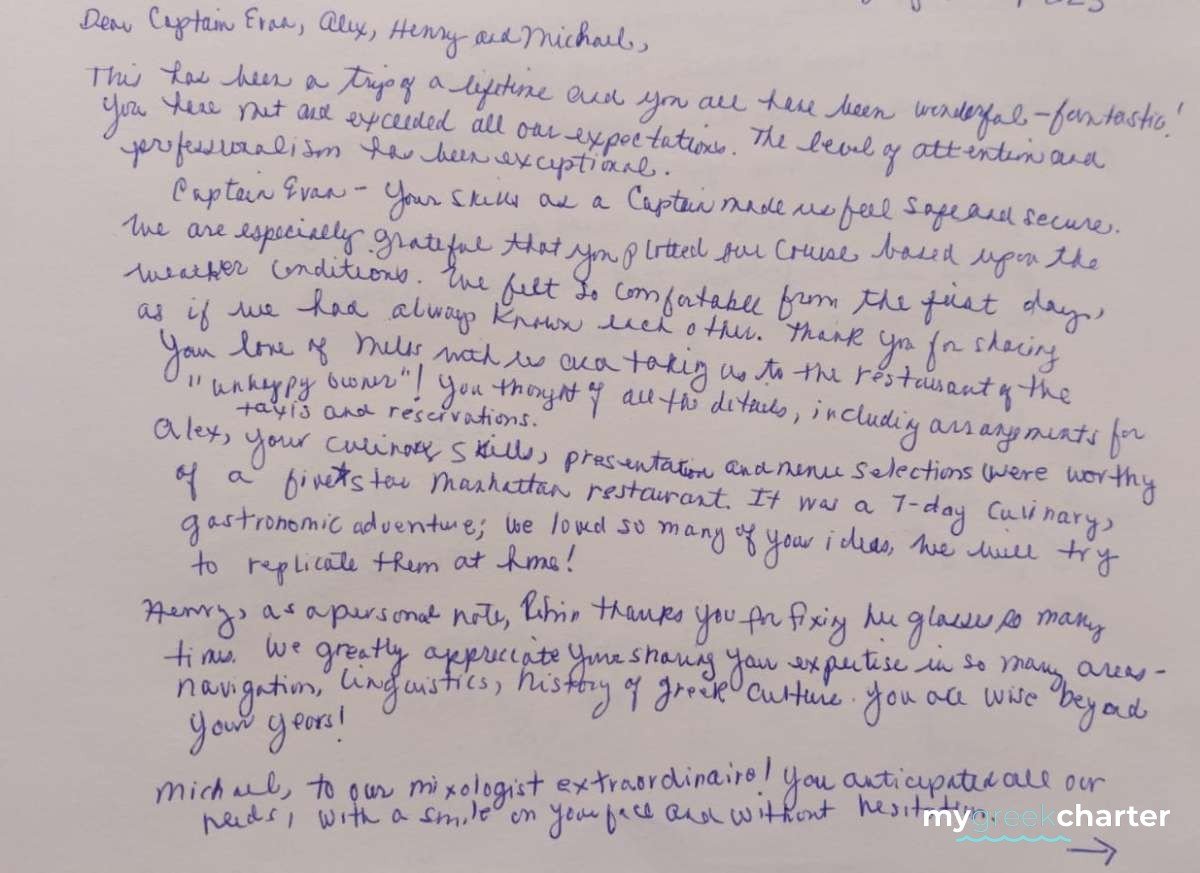 Dear Captain Evan, Alex, Henry and Michael,
This has been a trip of a lifetime and you all have been wonderful - fantastic!
You have met and exceeded all our expectations. The level of attention and
professionalism has been exceptional.
Captain Evan - Your skills as a Captain made us feel safe and secure.
We are especially grateful that you plotted our course based upon the
weather conditions. We felt so comfortable from the first day,
as if we had always known each other. Thank you for sharing
your love of with us and taking us to the restaurant of the
"unhappy owner"! You thought of all the details, including arrangements for
taxis and reservations.
Alex, your culinary skills, presentation and menu selections were worthy
of a five star Manhattan restaurant. It was a 7-day culinary,
gastronomic adventure; we loved so many of your ideas, we will try
to replicate them at home!
Henry, as a personal note, Robin thanks you for fixing her glasses so many
times. We greatly appreciate your sharing your expertise in so many areas -
navigation, linguistics, history of greek culture. You are wise beyond
your years!
Michael, to our mixologist extraordinaire! You anticipated all our
needs, with a smile on your face and without hesitation
→
mygreekcharter